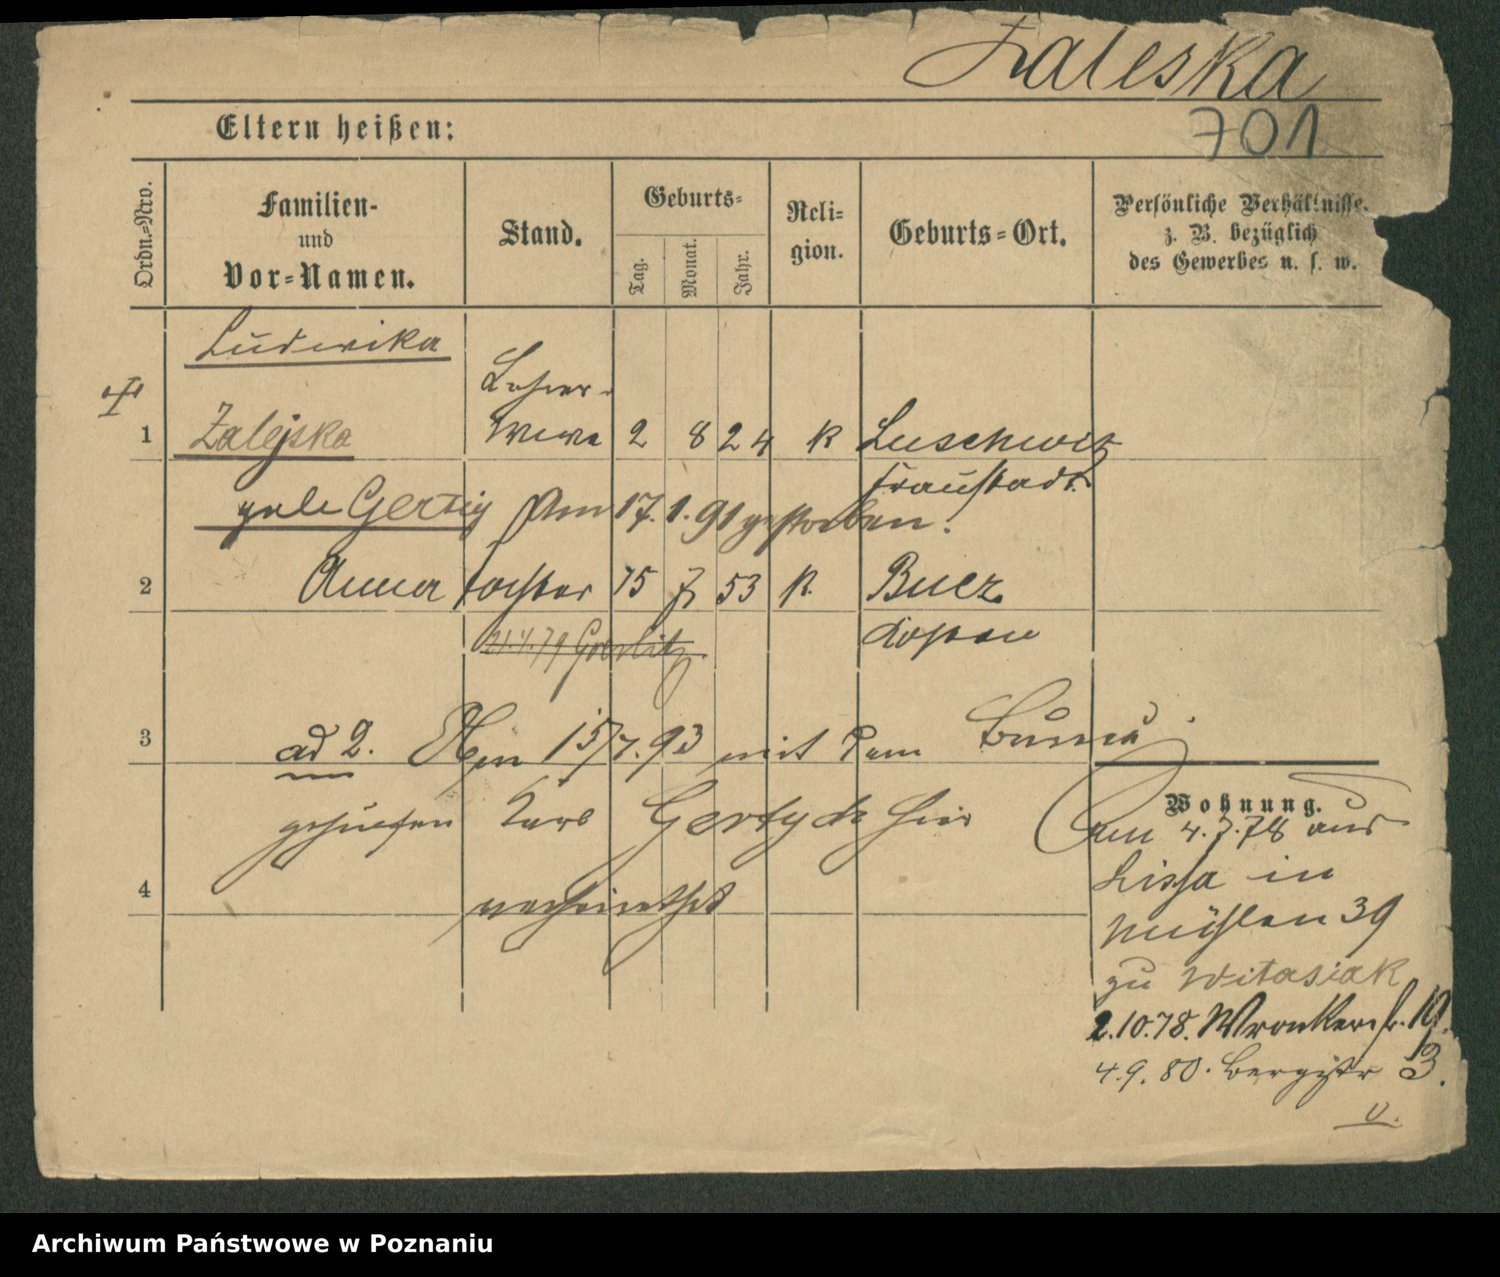 Zaleska
701
Eltern heißen:
Ordn.-Nro.
Familien-
und
Vor-Namen.
Stand.
Geburts-
Tag.
Monat.
Jahr.
Reli-
gion.
Geburts-Ort.
Persönliche Verhältnisse.
z. B. bezüglich
des Gewerbes u. s. w.
Ludwika
Lehrer-
1 Zalejska Wwe 2 8 24 k Luschwitz
Fraustadt
Gertig Am 17.1.91 gestorben.
2 Anna Tochter 15 7 53 k. Bucz
Kosten
21.4.79 Goerlitz
3 ad 2. Am 15/7.93 mit dem
Carl hier
4 verheirathet
Wohnung.
am 4.7.78 aus
Lissa in
Mühlen 39
zu Witasiak
2.10.78. Wronkerstr. 19.
4.9.80. Bergstr 3.
v.
Archiwum Państwowe w Poznaniu